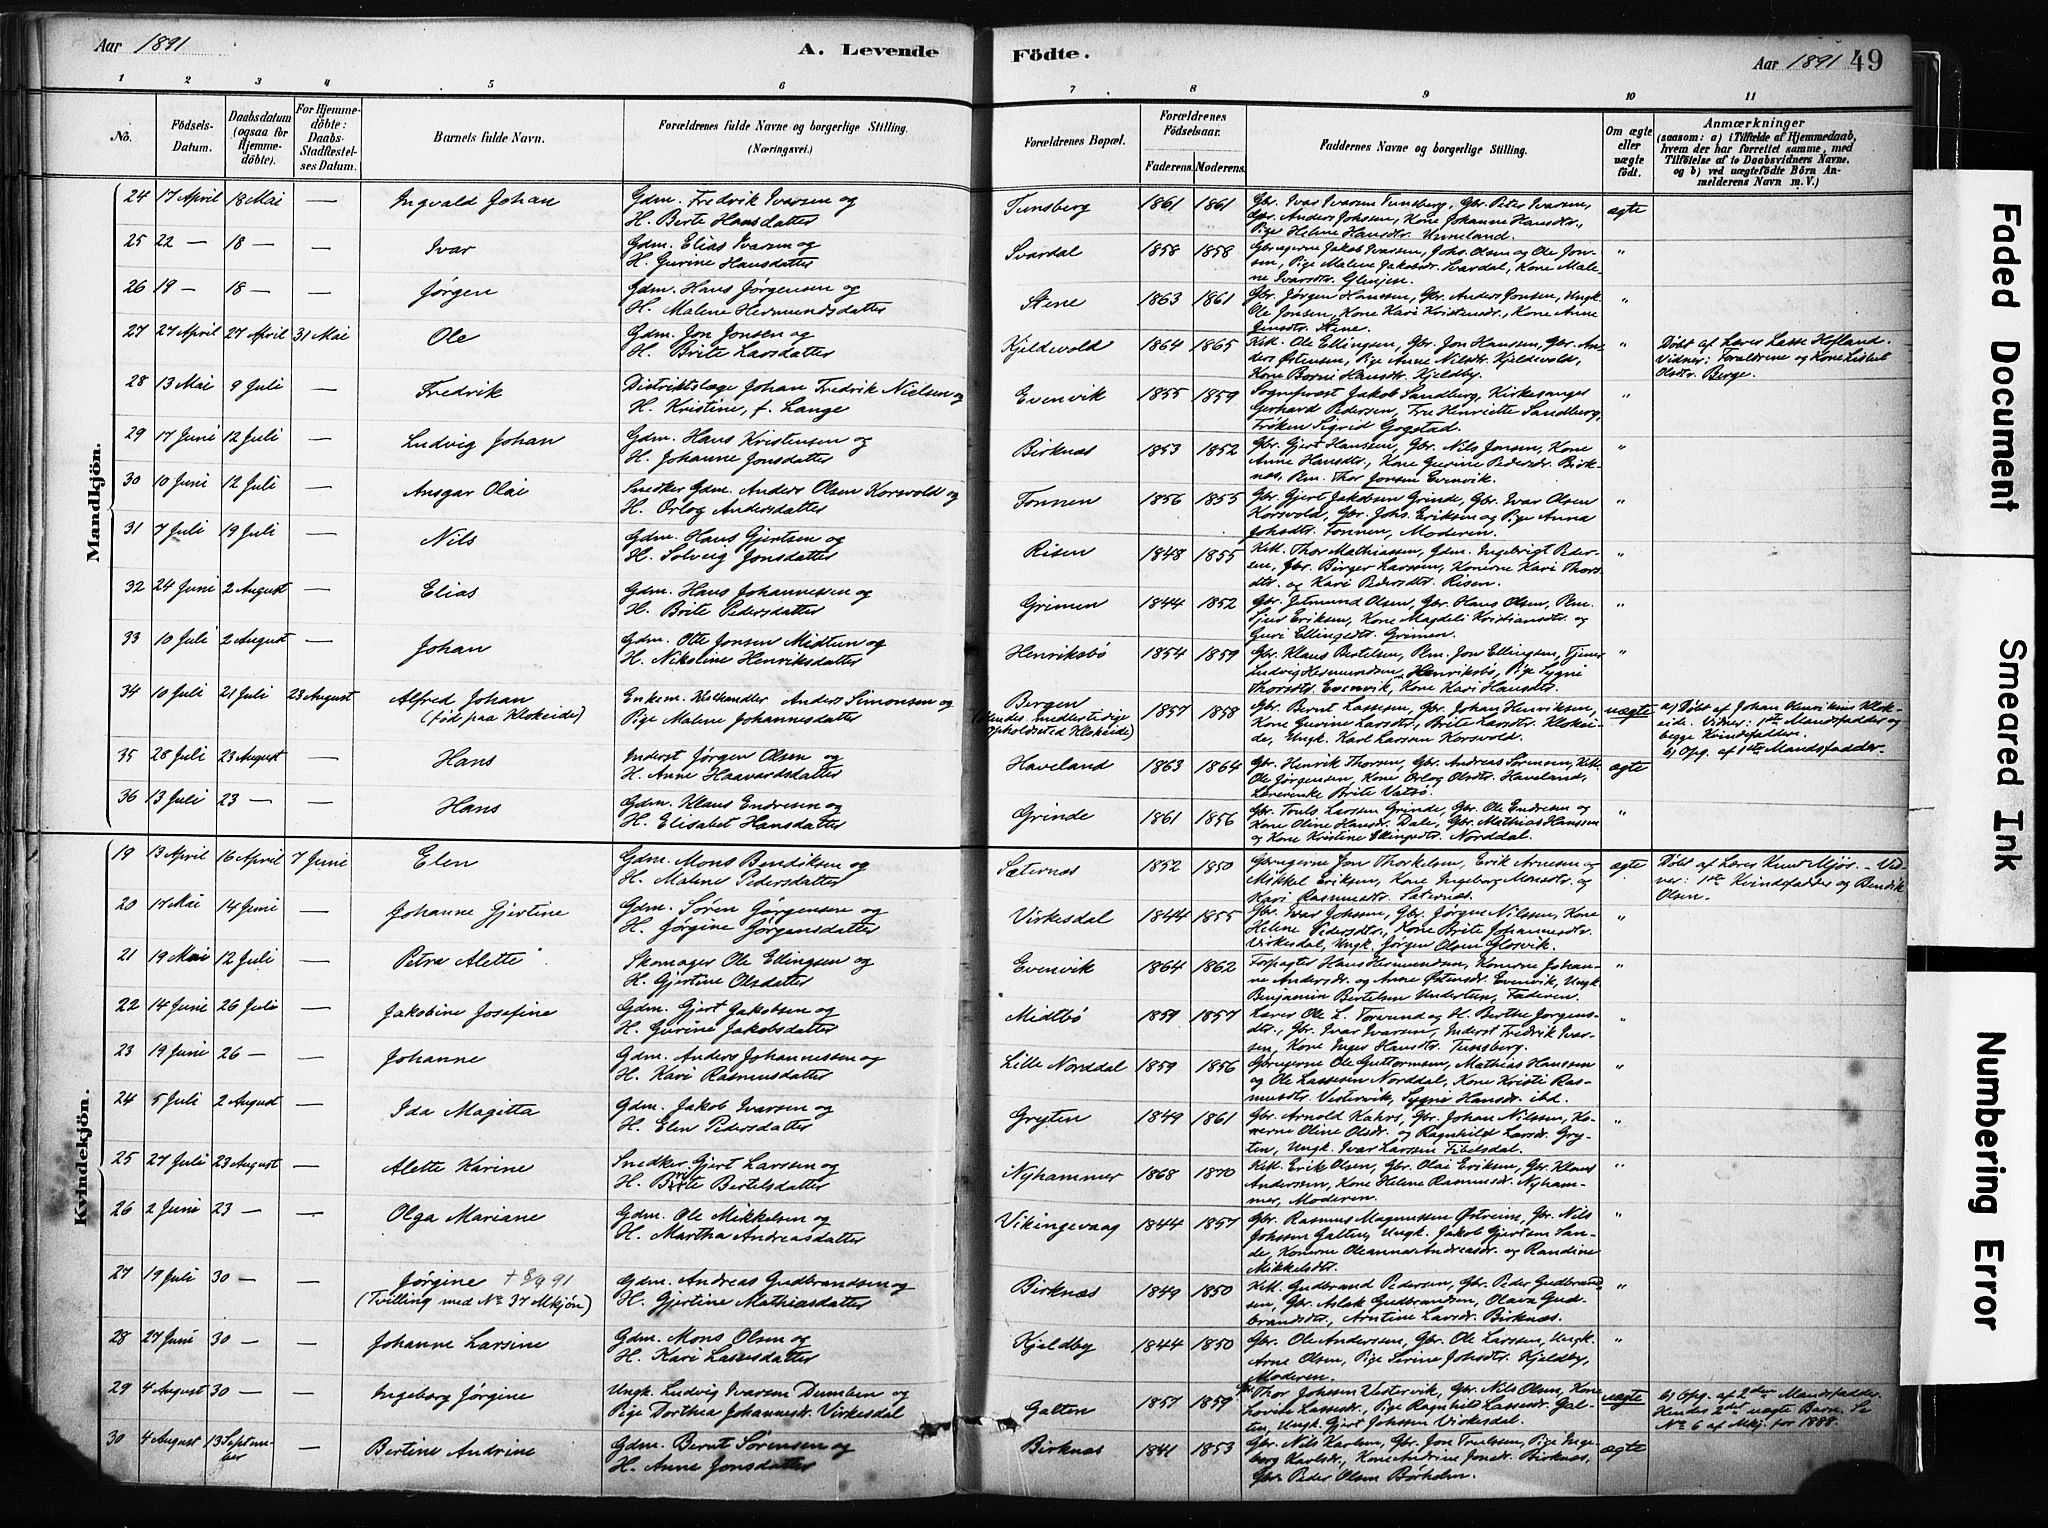 Aar 1891
A. Levende Födte.
Aar 1891 49
1 2 3 4 5 6 7 8 9 10 11
No.
Födsels-Datum.
Daabsdatum (ogsaa för Hjemmedöbte).
For Hjemmedöbte: Daabs-Stadfæstelses Datum.
Barnets fulde Navn.
Forældrenes fulde Navne og borgerlige Stilling. (Næringsvei.)
Forældrenes Bopæl.
Forældrenes Födselsaar.
Faderens. Moderens.
Faddernes Navne og borgerlige Stilling.
Om ægte eller uægte födt.
Anmærkninger
(saasom: a) i Tilfælde af Hjemmedaab, hvem der har forrettet samme, med Tilföielse af to Daabsvidners Navne. og b) ved uægtefödte Börn Anmelderens Navn m. V.)
Mandkjön.
24 17 April 18 Mai — Ingvald Johan Gdm. Fredrik Ivarsen og H. Berte Hansdatter Tunsberg 1861 1861 Gbr. Ivar Ivarsen Tunsberg, Gbr. Peter Ivarsen, Gbr. Anders Johsen, Kone Johanne Hansdtr., Pige Helene Hansdtr. ægte
25 22 — 18 — — Ivar Gdm. Elias Ivarsen og H. Gurine Hansdatter Svardal 1858 1858 Gbrugerne Jakob Ivarsen, Johs. Olsen og Ole Jonsen, Pige Malene Jakobsdr. Svardal, Kone Malene Ivarsdtr. "
26 19 — 18 — — Jørgen Gdm. Hans Jørgensen og H. Malene Hermundsdatter Stene 1863 1861 Gbr. Jørgen Hanssen, Gbr. Anders Jonsen, Ungk. Ole Jonsen, Kone Kari Kristensdr., Kone Anne Jensdtr. Stene. "
27 27 April 27 April 31 Mai Ole Gdm. Jon Jonsen og H. Brite Larsdatter Kjeldevold 1864 1865 Kst. Ole Ellingsen, Gbr. Jon Hanssen, Gbr. Anders Østensen, Pige Anne Nilsdtr. Kjeldevold, Kone Borni Hansdtr. Kjeldby. " Døbt af Lærer Lasse Hofland. Vidner: Forældrene og Kone Lisbet Olsdtr. Berge.
28 13 Mai 9 Juli — Fredrik Distriktslæge Johan Fredrik Nielsen og H. Kristine, f. Lange Evenvik 1855 1859 Sogneprost Jakob Sandberg, Kirkesanger Gerhard Pedersen, Fru Henriette Sandberg, Frøken Sigrid Gogstad. "
29 17 Juni 12 Juli — Ludvig Johan Gdm. Hans Kristensen og H. Johanne Jonsdatter Birknæs 1853 1852 Gbr. Gjert Hanssen, Gbr. Nils Jonsen, Kone Anne Hansdtr., Kone Gurine Pedersdr. Birknæs, Pm. Thor Jonsen Evenvik. "
30 10 Juni 12 Juli — Ansgar Olai Snedker Gdm. Anders Olsen Korsvold og H. Orlog Andersdatter Tonnen 1856 1855 Gbr. Gjert Jakobsen Grinde, Gbr. Ivar Olsen Korsvold, Gbr. Johs. Eriksen og Pige Anna Johsdtr. Tonnen, Moderen. "
31 7 Juli 19 Juli — Nils Gdm. Hans Gjertsen og H. Solveig Jonsdatter Risen 1848 1855 Kst. Thor Mathiassen, Gdm. Ingebrigt Pedersen, Gbr. Birger Larssen, Konerne Kari Thorsdtr. og Kari Pedersdtr. Risen. "
32 24 Juni 2 August — Elias Gdm. Hans Johannessen og H. Brite Pedersdatter Grimen 1844 1852 Gbr. Jetmund Olsen, Gbr. Hans Olsen, Pm. Sjur Eriksen, Kone Magdeli Kristiansdtr. og Guri Ellingsdtr. Grimen. "
33 10 Juli 2 August — Johan Gdm. Otte Jonsen Midtun og H. Nikoline Henriksdatter Henriksbø 1854 1859 Gbr. Klaus Bertelsen, Pm. Jon Ellingsen, Tjener Ludvig Hermundsen Henriksbø, Pige Sygni Thorsdtr. Evenvik, Kone Kari Hansdtr. "
34 10 Juli 21 Juli 23 August Alfred Johan (født paa Klokeide) Enkem. Anders Simonsen og Pige Malene Johannesdatter Bergen (Hendes midlertidige Opholdssted Klokeide) 1857 1858 Gbr. Bernt Lassesen, Gbr. Johan Henriksen, Kone Gurine Larsdtr., Brite Larsdtr. Klokeide, Ungk. Karl Larssen Korsvold. uægte a) Døbt af Johan Henriksen Klokeide. Vidner: 1ste Mandsfadder og begge Kvindefaddere. b) Opg. af 1ste Mandsfadder.
35 28 Juli 23 August — Hans Inderst Jørgen Olsen og H. Anne Haavardsdatter Haveland 1863 1864 Gbr. Henrik Thorsen, Gbr. Andreas Sørensen, Kst. Ole Jørgensen, Kone Orlog Olsdtr. Haveland, Lærerenke Brite Vatsø. ægte
36 13 Juli 23 — — Hans Gdm. Klaus Endresen og H. Elisabet Hansdatter Grinde 1861 1856 Gbr. Truls Larssen Grinde, Gbr. Ole Endresen og Kone Oline Hansdr. Dale, Gbr. Mathias Hanssen og Kone Kristine Ellingsdtr. Norddal. "
Kvindekjön.
19 13 April 16 April 7 Juni Elen Gdm. Mons Bendiksen og H. Malene Pedersdatter Sæternæs 1852 1850 Gbrugerne Jon Thorkelsen, Erik Arnesen og Mikkel Eriksen, Kone Ingeborg Monsdtr. og Kari Rasmusdtr. Sæternæs. ægte Døbt af Lærer Knut Mjøs. Vidner: 1ste Kvindefadder og Bendik Olsen.
20 17 Mai 14 Juni — Johanne Gjertine Gdm. Søren Jørgensen og H. Jørgine Jørgensdatter Virkesdal 1844 1855 Gbr. Ivar Johsen, Gbr. Jørgen Nilssen, Kone Helene Pedersdtr., Kone Brite Johannesdtr. Virkesdal, Ungk. Jørgen Olsen Glosvik. "
21 19 Mai 12 Juli — Petra Alette Skomager Ole Ellingsen og H. Gjertine Olsdatter Evenvik 1864 1862 Forpagter Hans Hermundsen, Konerne Johanne Andersdr. og Anne Østensdr. Evenvik, Ungk. Benjamin Bertelsen Undertun, Faderen. "
22 14 Juni 26 Juli — Jakobine Josefine Gdm. Gjert Jakobsen og H. Gurine Jakobsdatter Midtbø 1859 1857 Lærer Ole L. Torvund og H. Berthe Jørgensdtr., Gbr. Ivar Ivarsen, Inderst Fredrik Ivarsen, Kone Inger Hansdtr. Tunsberg. "
23 19 Juni 26 — — Johanne Gdm. Anders Johannessen og H. Kari Rasmusdatter Lille Norddal 1859 1856 Gbrugerne Ole Guttormsen, Mathias Hanssen og Ole Lassesen Norddal, Kone Kristi Rasmusdtr. Vestervik, Sygni Hansdr. ibd. "
24 5 Juli 2 August — Ida Magitta Gdm. Jakob Ivarsen og H. Elen Pedersdatter Gryten 1849 1861 Gbr. Arnold Kahrs, Gbr. Johan Nilssen, Konerne Oline Olsdr. og Ragnhild Larsdr. Gryten, Ungk. Ivar Larssen "
25 27 Juli 23 August — Alette Karine Snedker Gjert Larssen og H. Brite Bertelsdatter Nyhammer 1868 1870 Kst. Erik Olsen, Gbr. Olai Eriksen, Gbr. Klaus Andersen, Kone Helene Rasmusdr. Nyhammer, Moderen. "
26 2 Juni 23 — — Olga Mariane Gdm. Ole Mikkelsen og H. Martha Andreasdatter Vikingevaag 1844 1857 Gbr. Rasmus Magnussen Østreim, Gbr. Nils Johssen Galten, Ungk. Jakob Gjertsen Sande, Konerne Oleanna Andreasdr. og Randine Mikkelsdtr. "
27 19 Juli 30 — — Jørgine + 8/9 91 (Tvilling med No 37 Mkjøn) Gdm. Andreas Gudbrandsen og H. Gjertine Mathiasdatter Birknæs 1849 1850 Kst. Gudbrand Pedersen, Gbr. Peder Gudbrandsen, Gbr. Aslak Gudbrandsen, Olava Gudbrandsdtr., Arntine Larsdr. Birknæs. "
28 27 Juni 30 — — Johanne Larsine Gdm. Mons Olsen og H. Kari Lassesdatter Kjeldby 1844 1850 Gbr. Ole Anderssen, Gbr. Ole Larssen, Ungk. Arne Olsen, Pige Serine Johsdtr. Kjeldby, Moderen. "
29 4 August 30 — — Ingeborg Jørgine Ungk. Ludvig Ivarsen Dumben og Pige Dorthea Johannesdr. Virkesdal Galten 1857 1859 Gbr. Thor Johssen Vestervik, Gbr. Nils Olsen, Kone Lovise Larssdr., Pige Ragnhild Lassesdr. Galten, Ungk. Gjert Johssen Virkesdal. uægte b) Opg. af 2den Mandsfadder. Hendes 2det uægte Barn. Se No 6 af Mkj. for 1888.
30 4 August 13 September — Bertine Andrine Gdm. Bernt Sørensen og H. Anne Jonsdatter Birknæs 1841 1853 Gbr. Nils Karlsen, Gbr. Jon Trulssen, Pige Ingeborg Karlsdr., Kone Andrine Jonsdr. Birknæs, Gbr. Peder Olsen Børholm. ægte
Faded Document
Smeared Ink
Numbering Error